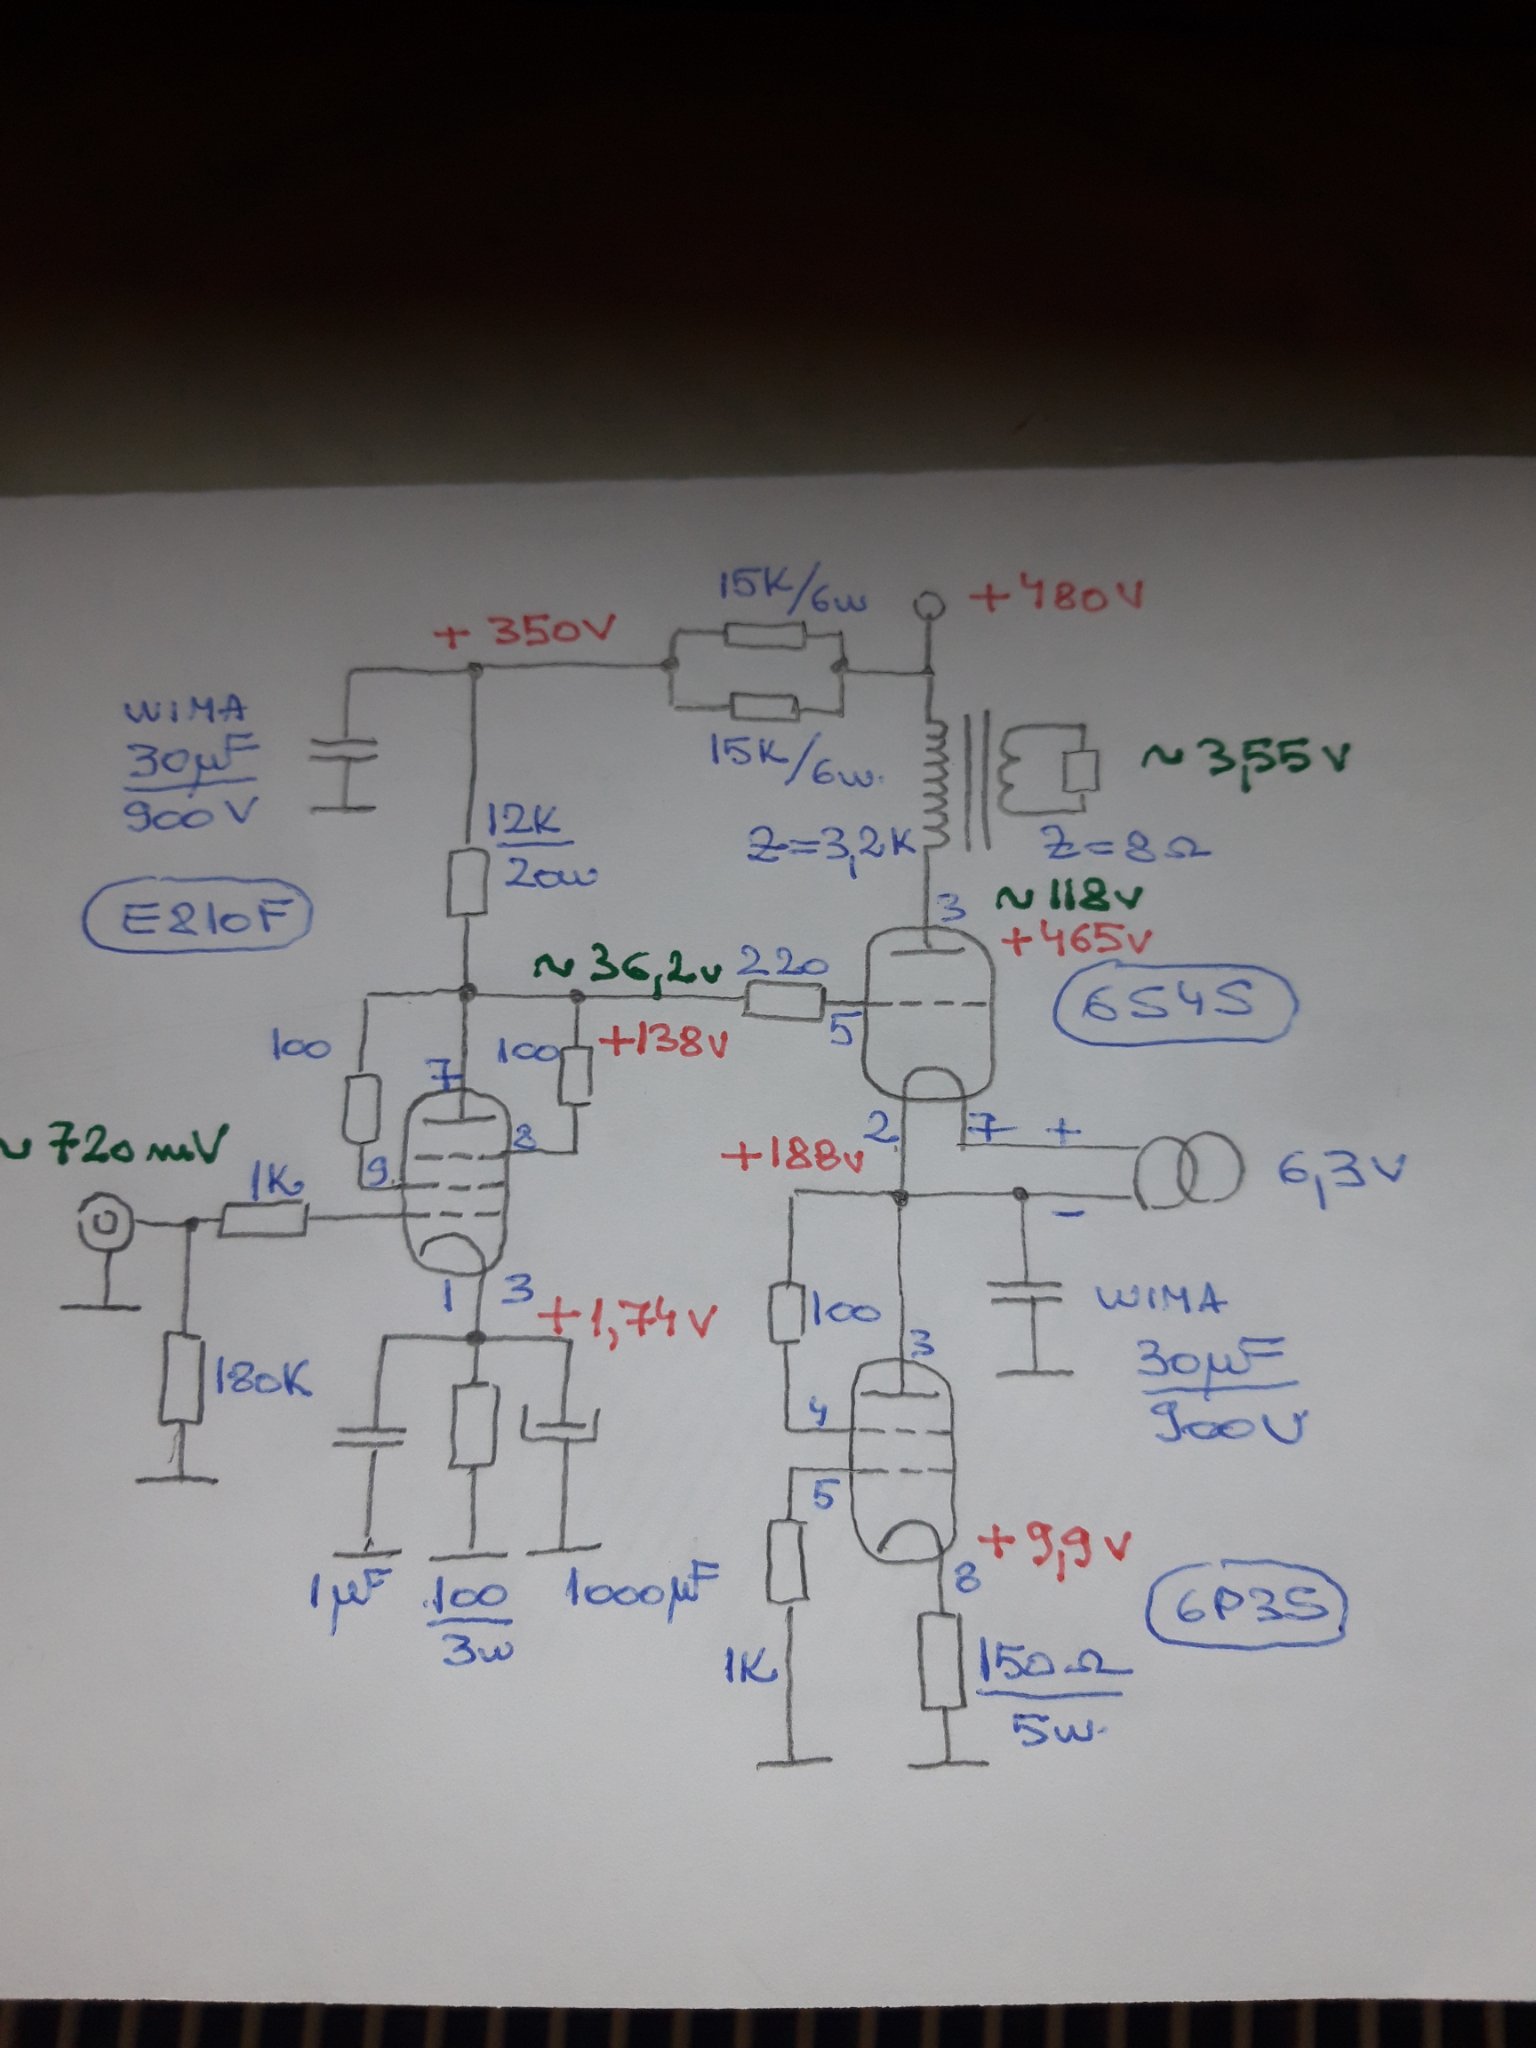 15K/6w
+480V
+350V
WIMA
30µF
900V
15K/6w.
~3,55v
12K
20w
Z=3,2K
Z=8Ω
E810F
3
~118v
+465v
~36,2v
220
6S4S
100
100
+138v
5
7
8
~720mV
9
1K
2
7
+
+188v
6,3v
-
1
3
+1,74V
100
WIMA
30µF
900V
180K
3
4
5
+9,9v
8
1µF
100
3w
1000µF
6P3S
1K
150Ω
5w.